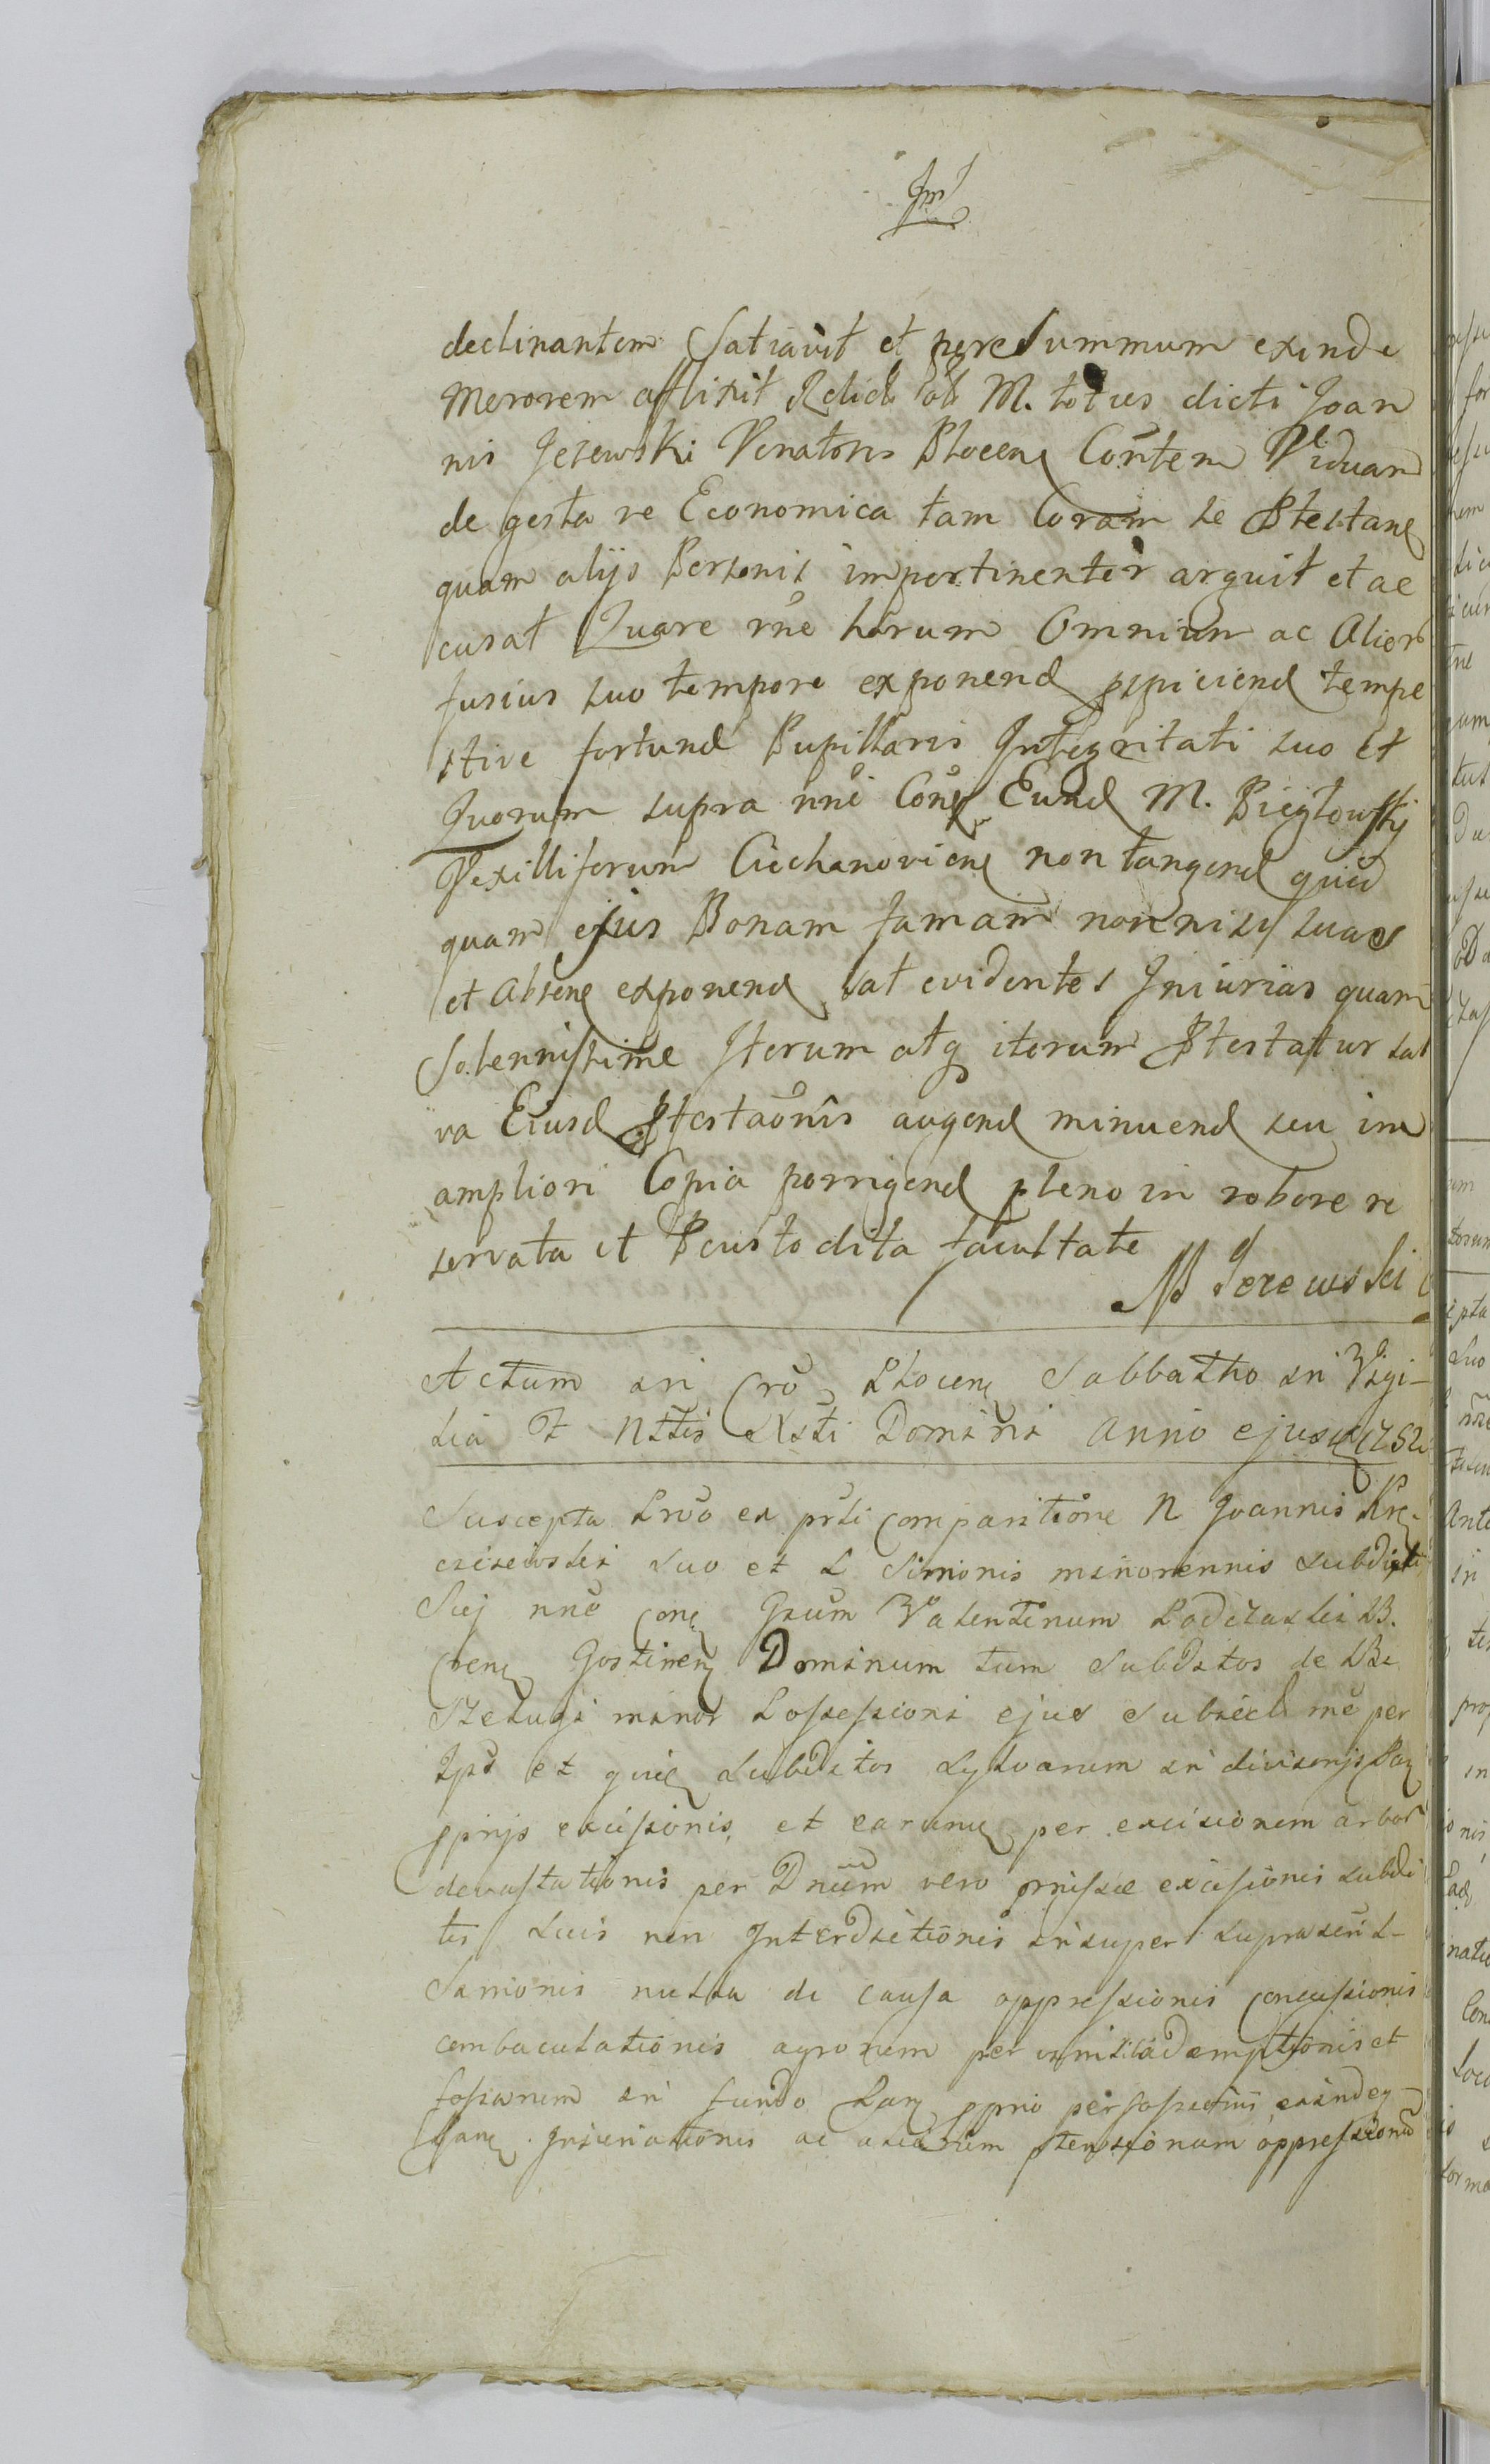 declinantem Satiavit et per Summum exinde
Merorem afflixit Relict ab M. toties dicti Joan
nis Jezewski Venatoris Plocen Contem Viduam
de gesta re Economica tam Coram se Ptestan
quam alijs Personis impertinenter arguit et ac
cusat Quare rne horum Omnium ac Alior
fusius suo tempore exponend pspiciend tempe
stive fortund Pupillaris Integritati suo et
Quorum supra nne Con Eund M.
Vexilliferum Ciechanovien non tangend quid
quam ejus Bonam famam non nisi suas
et Absen exponend sat evidentes Iniurias quam
Solennissime Iterum atq iterum Ptestatur sal
va Eiusd Ptestaonis augend minuend seu in
ampliori Copia porrigend pleno in robore re
servata et Pcustodita facultate
M Jezewski
Actum in Cro Plocen Sabbatho in Vigi-
lia F Nttis Xsti Domini Anno ejusd
Suscepta Pro ex prli Comparitione N Joannis
suo et Simonis minorennis subditi
Sui nne Con Gsum Valentinum Podczaski B.
Cren Gostinen Dominum tum Subditos de
minor Possessioni ejus subiect rne per
Ips et subditos Sylvarum in divisorijs Par
pprijs excissionis et earum per excisionem arbor
devastationis per Dnum vero pmissae excisionis subdi
tis suis non Interdictionis insuper
Simonis nulla de causa oppressionis concussionis
combaculationis agrorum per ademptionis et
fossarum in fundo Par pprio
Iniuriationis ac aliarum ptensionum oppressionu